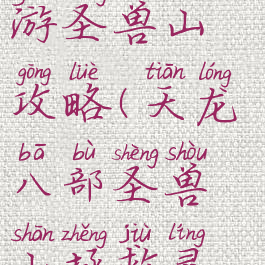 游圣兽山
gōng lüè tiān lóng
攻略(天龙
bā bù shèng shòu
八部圣兽
shān zhěng jiù líng
山拯救灵